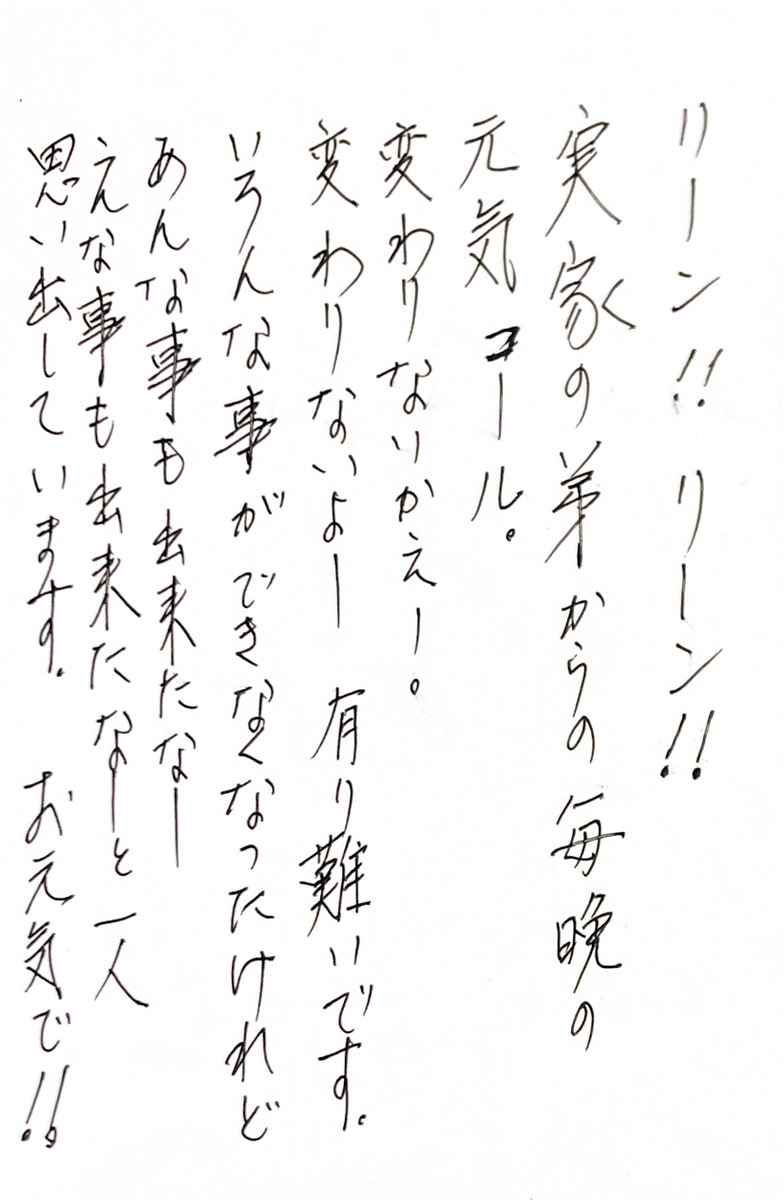 リーン!! リーン!!
実家の弟からの毎晩の
元気コール。
変わりないかえー。
変わりないよー 有り難いです。
いろんな事ができなくなったけれど
あんな事も出来たなー
こんな事も出来たなーと一人
思い出しています。 お元気で!!